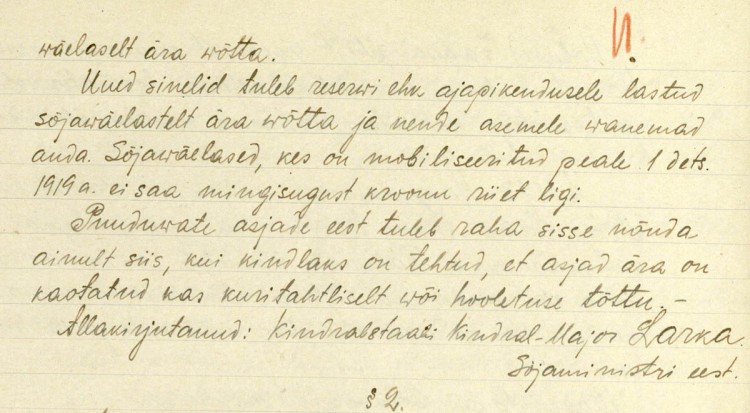 11.
wäelaselt ära wõtta.
Uued sinelid tuleb reserwi ehk ajapikendusele lastud
sõjawäelastelt ära wõtta ja nende asemele wanemad
anda. Sõjawäelased, kes on mobiliseeritud peale 1 dets.
1919 a. ei saa mingisugust kroonu riiet ligi.
Puuduwate asjade eest tuleb raha sisse nõuda
ainult siis, kui kindlaks on tehtud, et asjad ära on
kaotatud kas kuritahtliselt wõi hooletuse tõttu.-
Allakirjutanud: Kindralstaabi Kindral-Major Larka.
Sõjaministri eest.
§ 2.